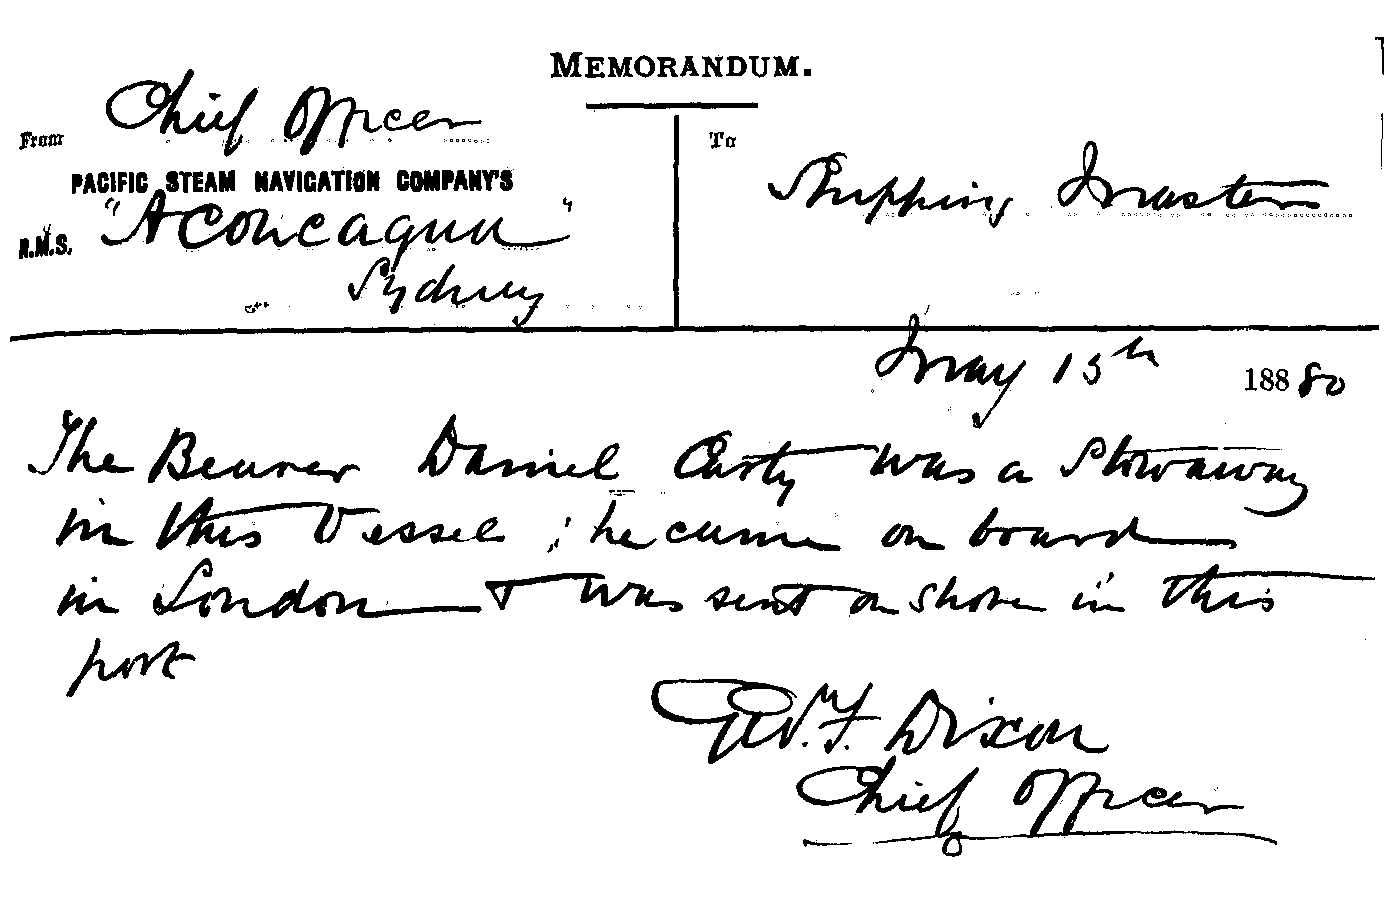 MEMORANDUM.
From Chief Officer
PACIFIC STEAM NAVIGATION COMPANY'S
R.M.S. "Aconcagua"
Sydney
To
Shipping Master
May 13th 18880
The Bearer Daniel Carty was a Stowaway
in this Vessel; he came on board
in London & was sent on shore in this
port
Geo. F. Dixon
Chief Officer